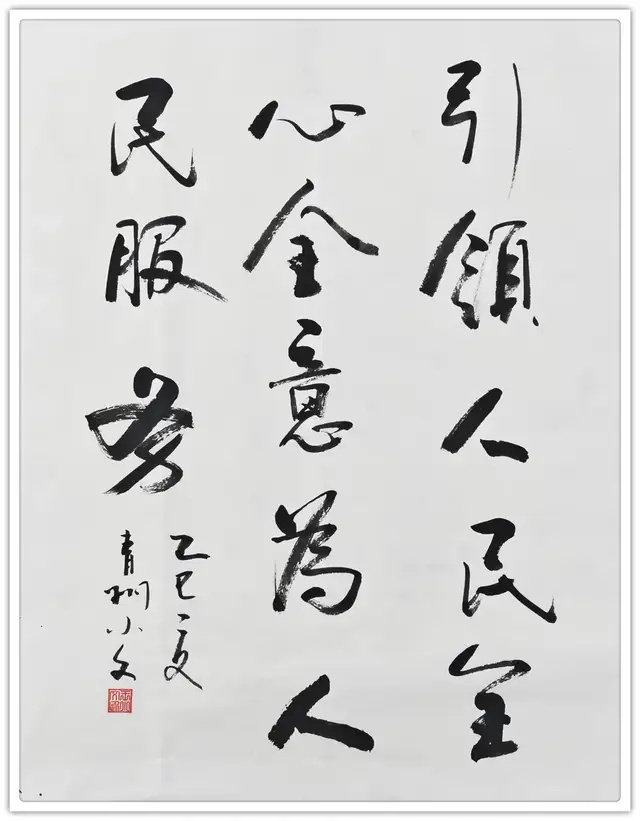 引領人民全
心全意為人
民服务
乙巳夏
青州小文